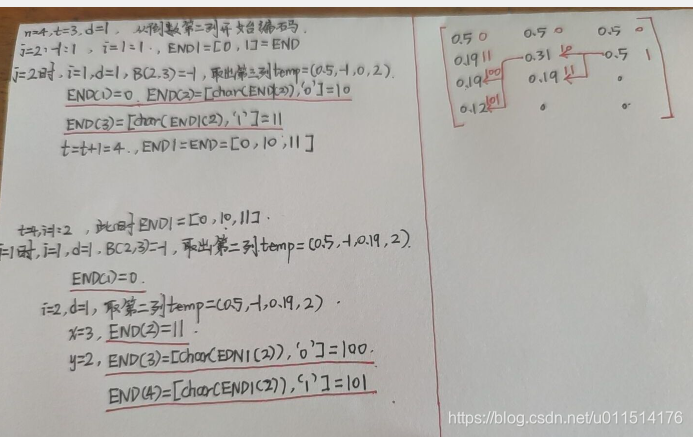 n=4, t=3, d=1, 从倒数第二列开始编码
j=2:-1:1, i=1=1., END1=[0, 1]=END
j=2时, i=1, d=1, B(2,3)=-1, 取出第三列temp=(0.5,-1,0,2).
END(1)=0. END(2)=[char(END1(2)),'0']=10
END(3)=[char(END1(2)),'1']=11
t=t+1=4., END1=END=[0, 10, 11]
t=4, 此时END1=[0, 10, 11].
j=1时, i=1, d=1. B(2,3)=-1, 取出第二列temp=(0.5,-1,0.19,2).
END(1)=0.
i=2, d=1, 取第二列temp=(0.5,-1,0.19,2).
x=3, END(2)=11.
y=2, END(3)=[char(EDN1(2)),'0']=100.
END(4)=[char(END1(2)),'1']=101
0.5 0 0.5 0 0.5 0
0.19 11 0.31 10 0.5 1
0.19 100 0.19 11 0
0.12 101 0 0
https://blog.csdn.net/u011514176